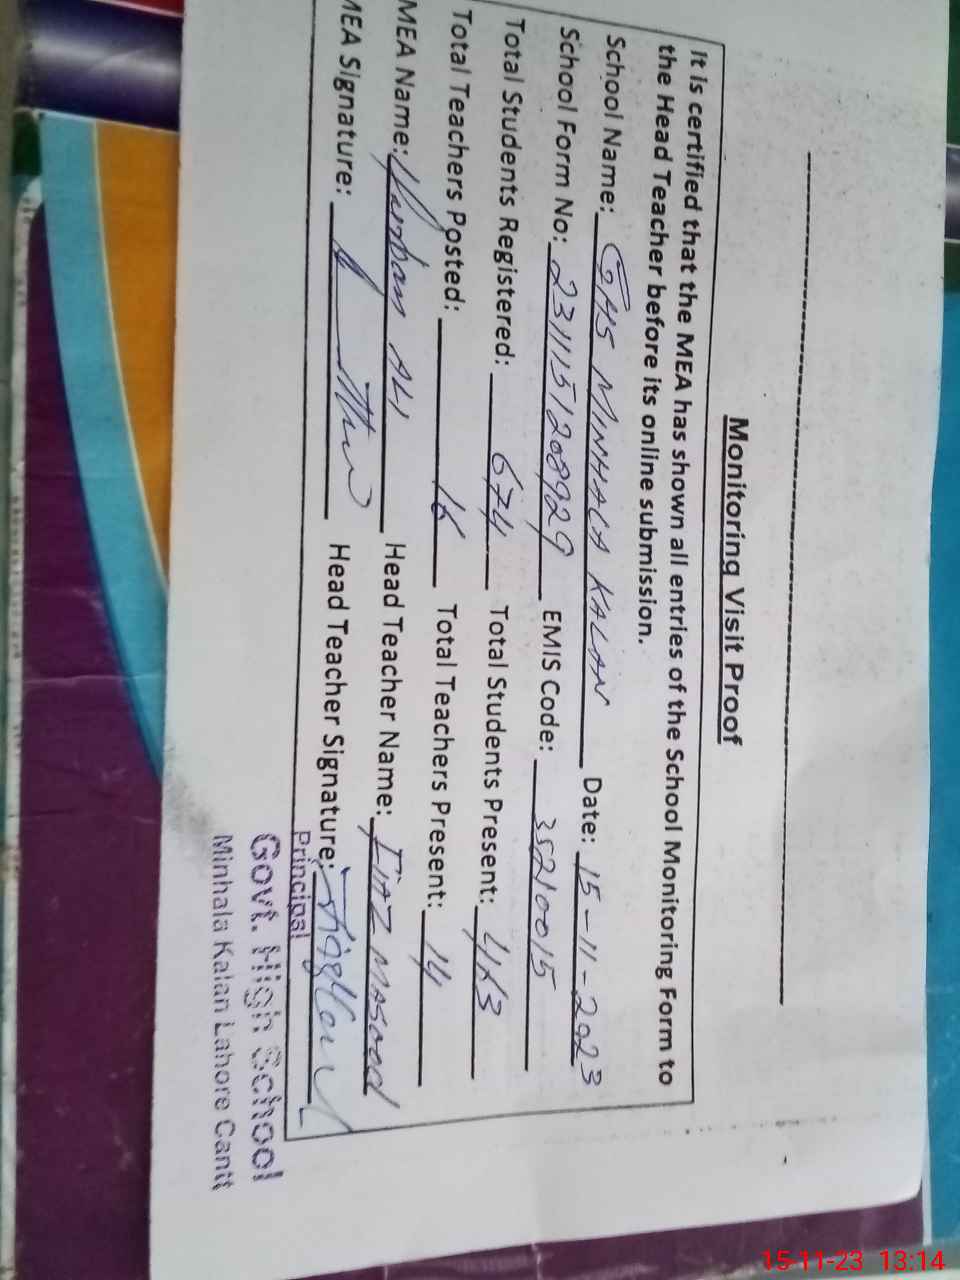 Monitoring Visit Proof
It is certified that the MEA has shown all entries of the School Monitoring Form to
the Head Teacher before its online submission.
School Name: GHS MINHALA KALAN Date: 15-11-2023
School Form No: 2311151208929 EMIS Code: 35210015
Total Students Registered: 674 Total Students Present:
Total Teachers Posted: 16 Total Teachers Present: 14
MEA Name: ALI Head Teacher Name: MASOOD
MEA Signature: Head Teacher Signature:
Principal
Govt. High School
Minhala Kalan Lahore Cantt
15-11-23 13:14